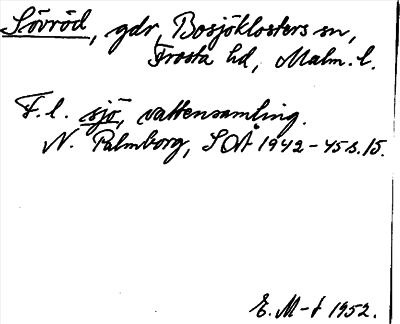 Sövröd, gdr, Bosjöklosters sn,
Frosta hd, Malm. l.
F. l. sjö, vattensamling.
N. Palmborg, SOÅ 1942-45 s. 15.
E. M-t 1952.